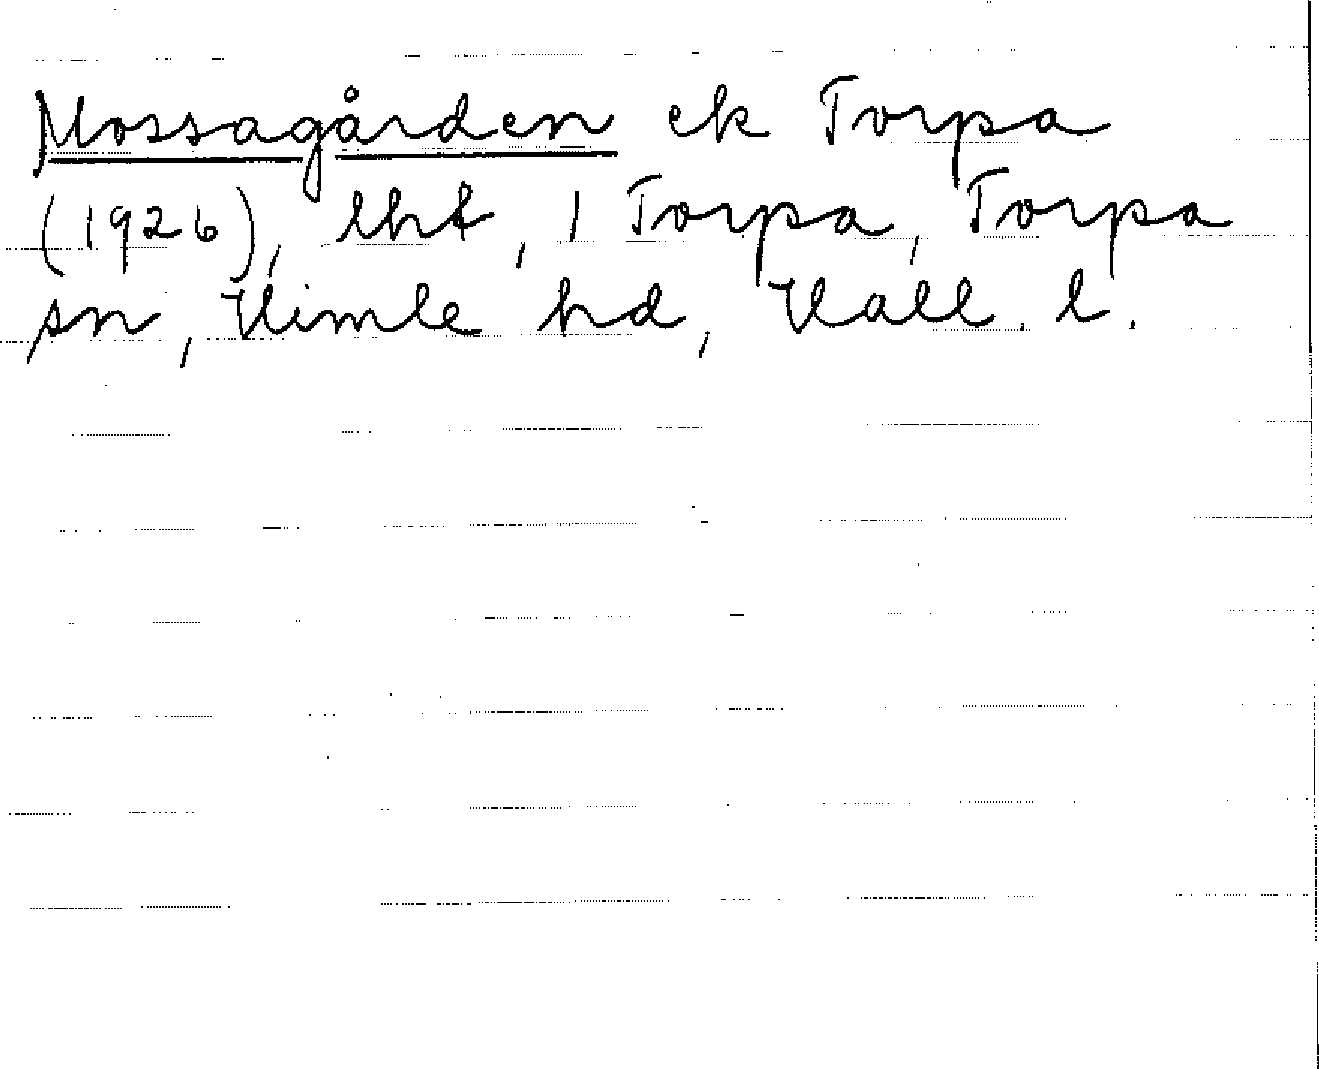 Mossagården ek Torpa
(1926), lht, 1 Torpa, Torpa
sn, Himle hd, Hall. l.